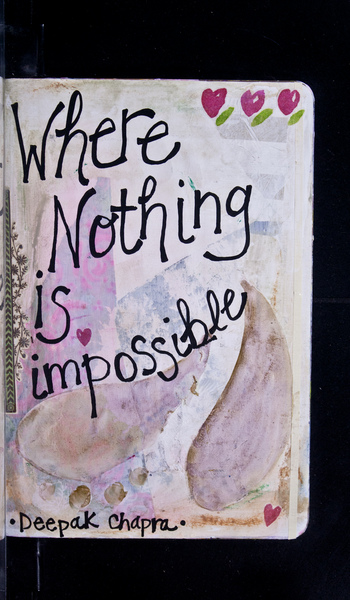 Where
Nothing
is
impossible
•Deepak Chapra•